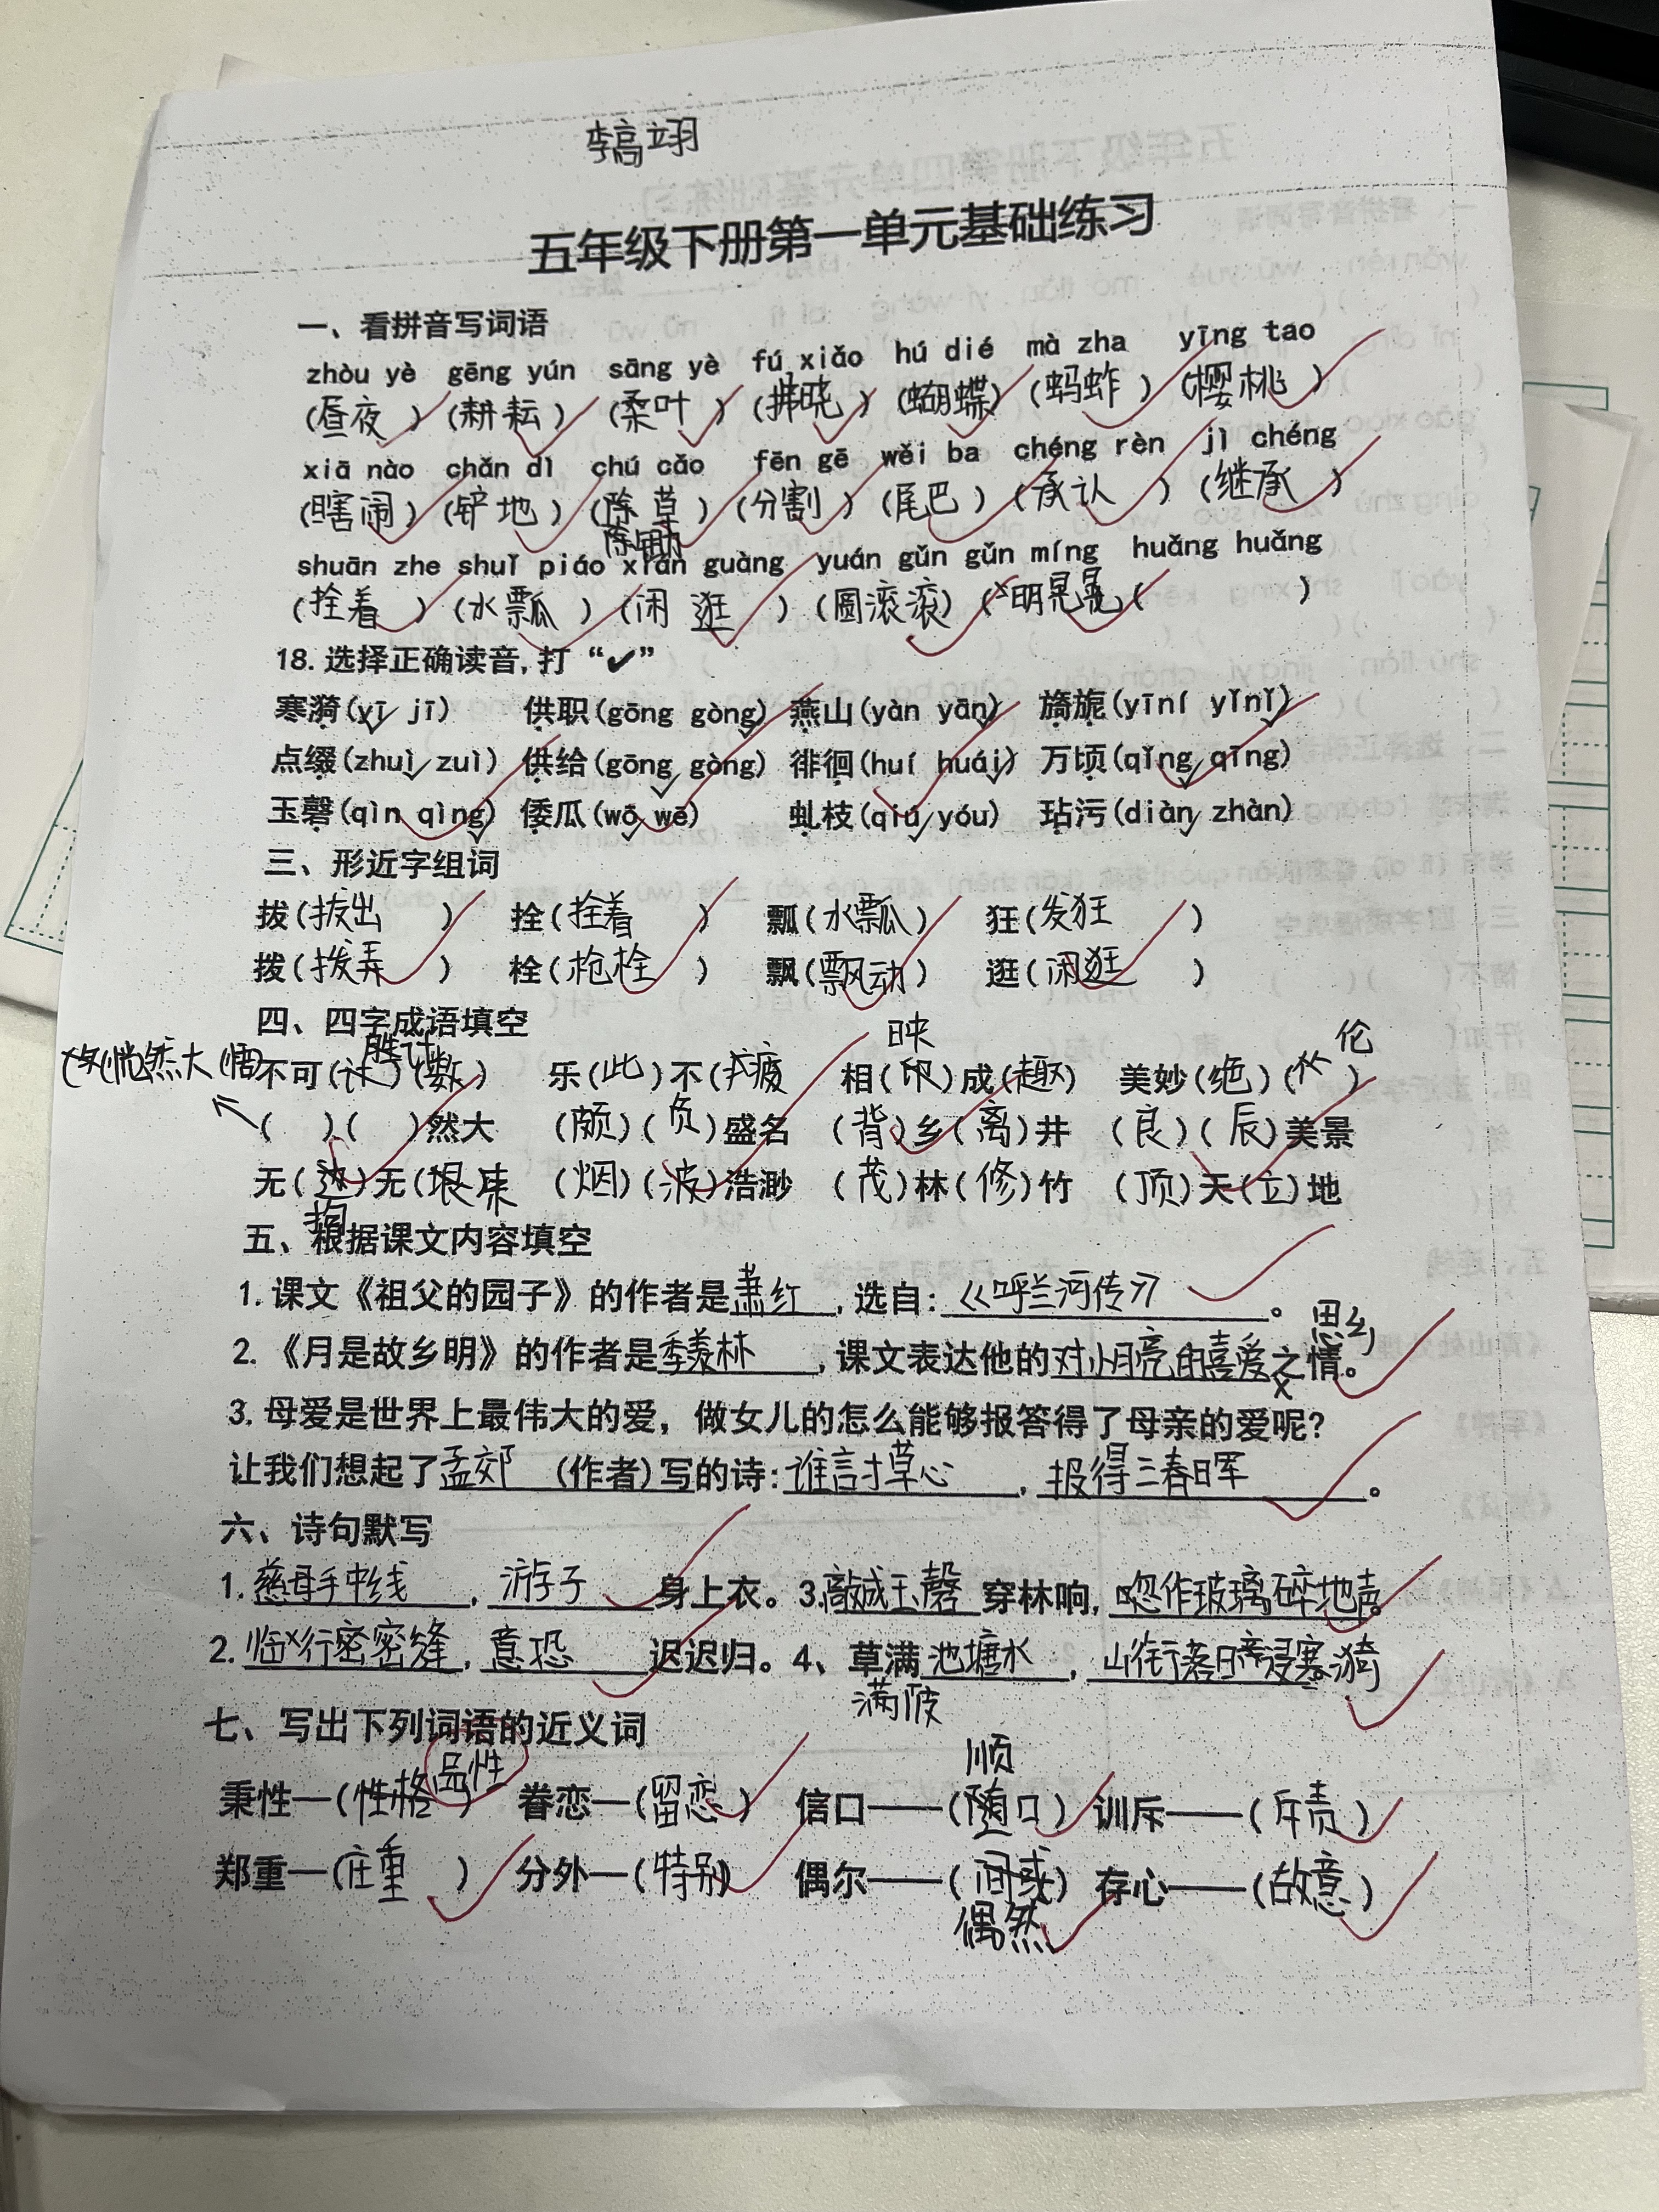 五年级下册第一单元基础练习
一、看拼音写词语
zhòu yè gēng yún sāng yè fú xiǎo hú dié mà zha yīng tao
(昼夜) (耕耘) (柔叶) (拂晓) (蝴蝶) (蚂蚱) (樱桃)
xiā nào chǎn dì chú cǎo fēn gē wěi ba chéng rèn jì chéng
(瞎闹) (铲地) (除草) (分割) (尾巴) (承认) (继承)
除锄
shuān zhe shuǐ piáo xián guàng yuán gǔn gǔn míng huǎng huǎng
(拴着) (水瓢) (闲逛) (圆滚滚) (明晃晃( )
18.选择正确读音,打“✔”
寒漪(yī jī) 供职(gōng gòng) 燕山(yàn yān) 旖旎(yīní yǐnǐ)
点缀(zhuì zuì) 供给(gōng gòng) 徘徊(huí huái) 万顷(qǐng qīng)
玉磬(qìn qìng) 倭瓜(wō wē) 虬枝(qiú yóu) 玷污(diàn zhàn)
三、形近字组词
拔(拔出) 拴(拴着) 瓢(水瓢) 狂(发狂)
拨(拨弄) 栓(枪栓) 飘(飘动) 逛(闲逛)
四、四字成语填空
胜计 映 伦
不可(计)(数) 乐(此)不(疲) 相(印)成(趣) 美妙(绝)( )
恍然大(悟)
( )( )然大 (颇)(负)盛名 (背)乡(离)井 (良)(辰)美景
无(边)无(垠) (烟)(波)浩渺 (茂)林(修)竹 (顶)天(立)地
拘
五、根据课文内容填空
1.课文《祖父的园子》的作者是萧红,选自:《呼兰河传》。
思乡
2.《月是故乡明》的作者是季羡林,课文表达他的对小月亮的喜爱之情。
3.母爱是世界上最伟大的爱，做女儿的怎么能够报答得了母亲的爱呢?
让我们想起了孟郊(作者)写的诗:谁言寸草心,报得三春晖。
六、诗句默写
1.慈母手中线,游子身上衣。3.敲成玉磬穿林响,忽作玻璃碎地声。
2.临行密密缝,意恐迟迟归。4、草满池塘水,山衔落日浸寒漪
满陂
七、写出下列词语的近义词
品性 顺
秉性—(性格) 眷恋—(留恋) 信口——(随口) 训斥——(斥责)
郑重—(庄重) 分外—(特别) 偶尔——(间或) 存心——(故意)
偶然